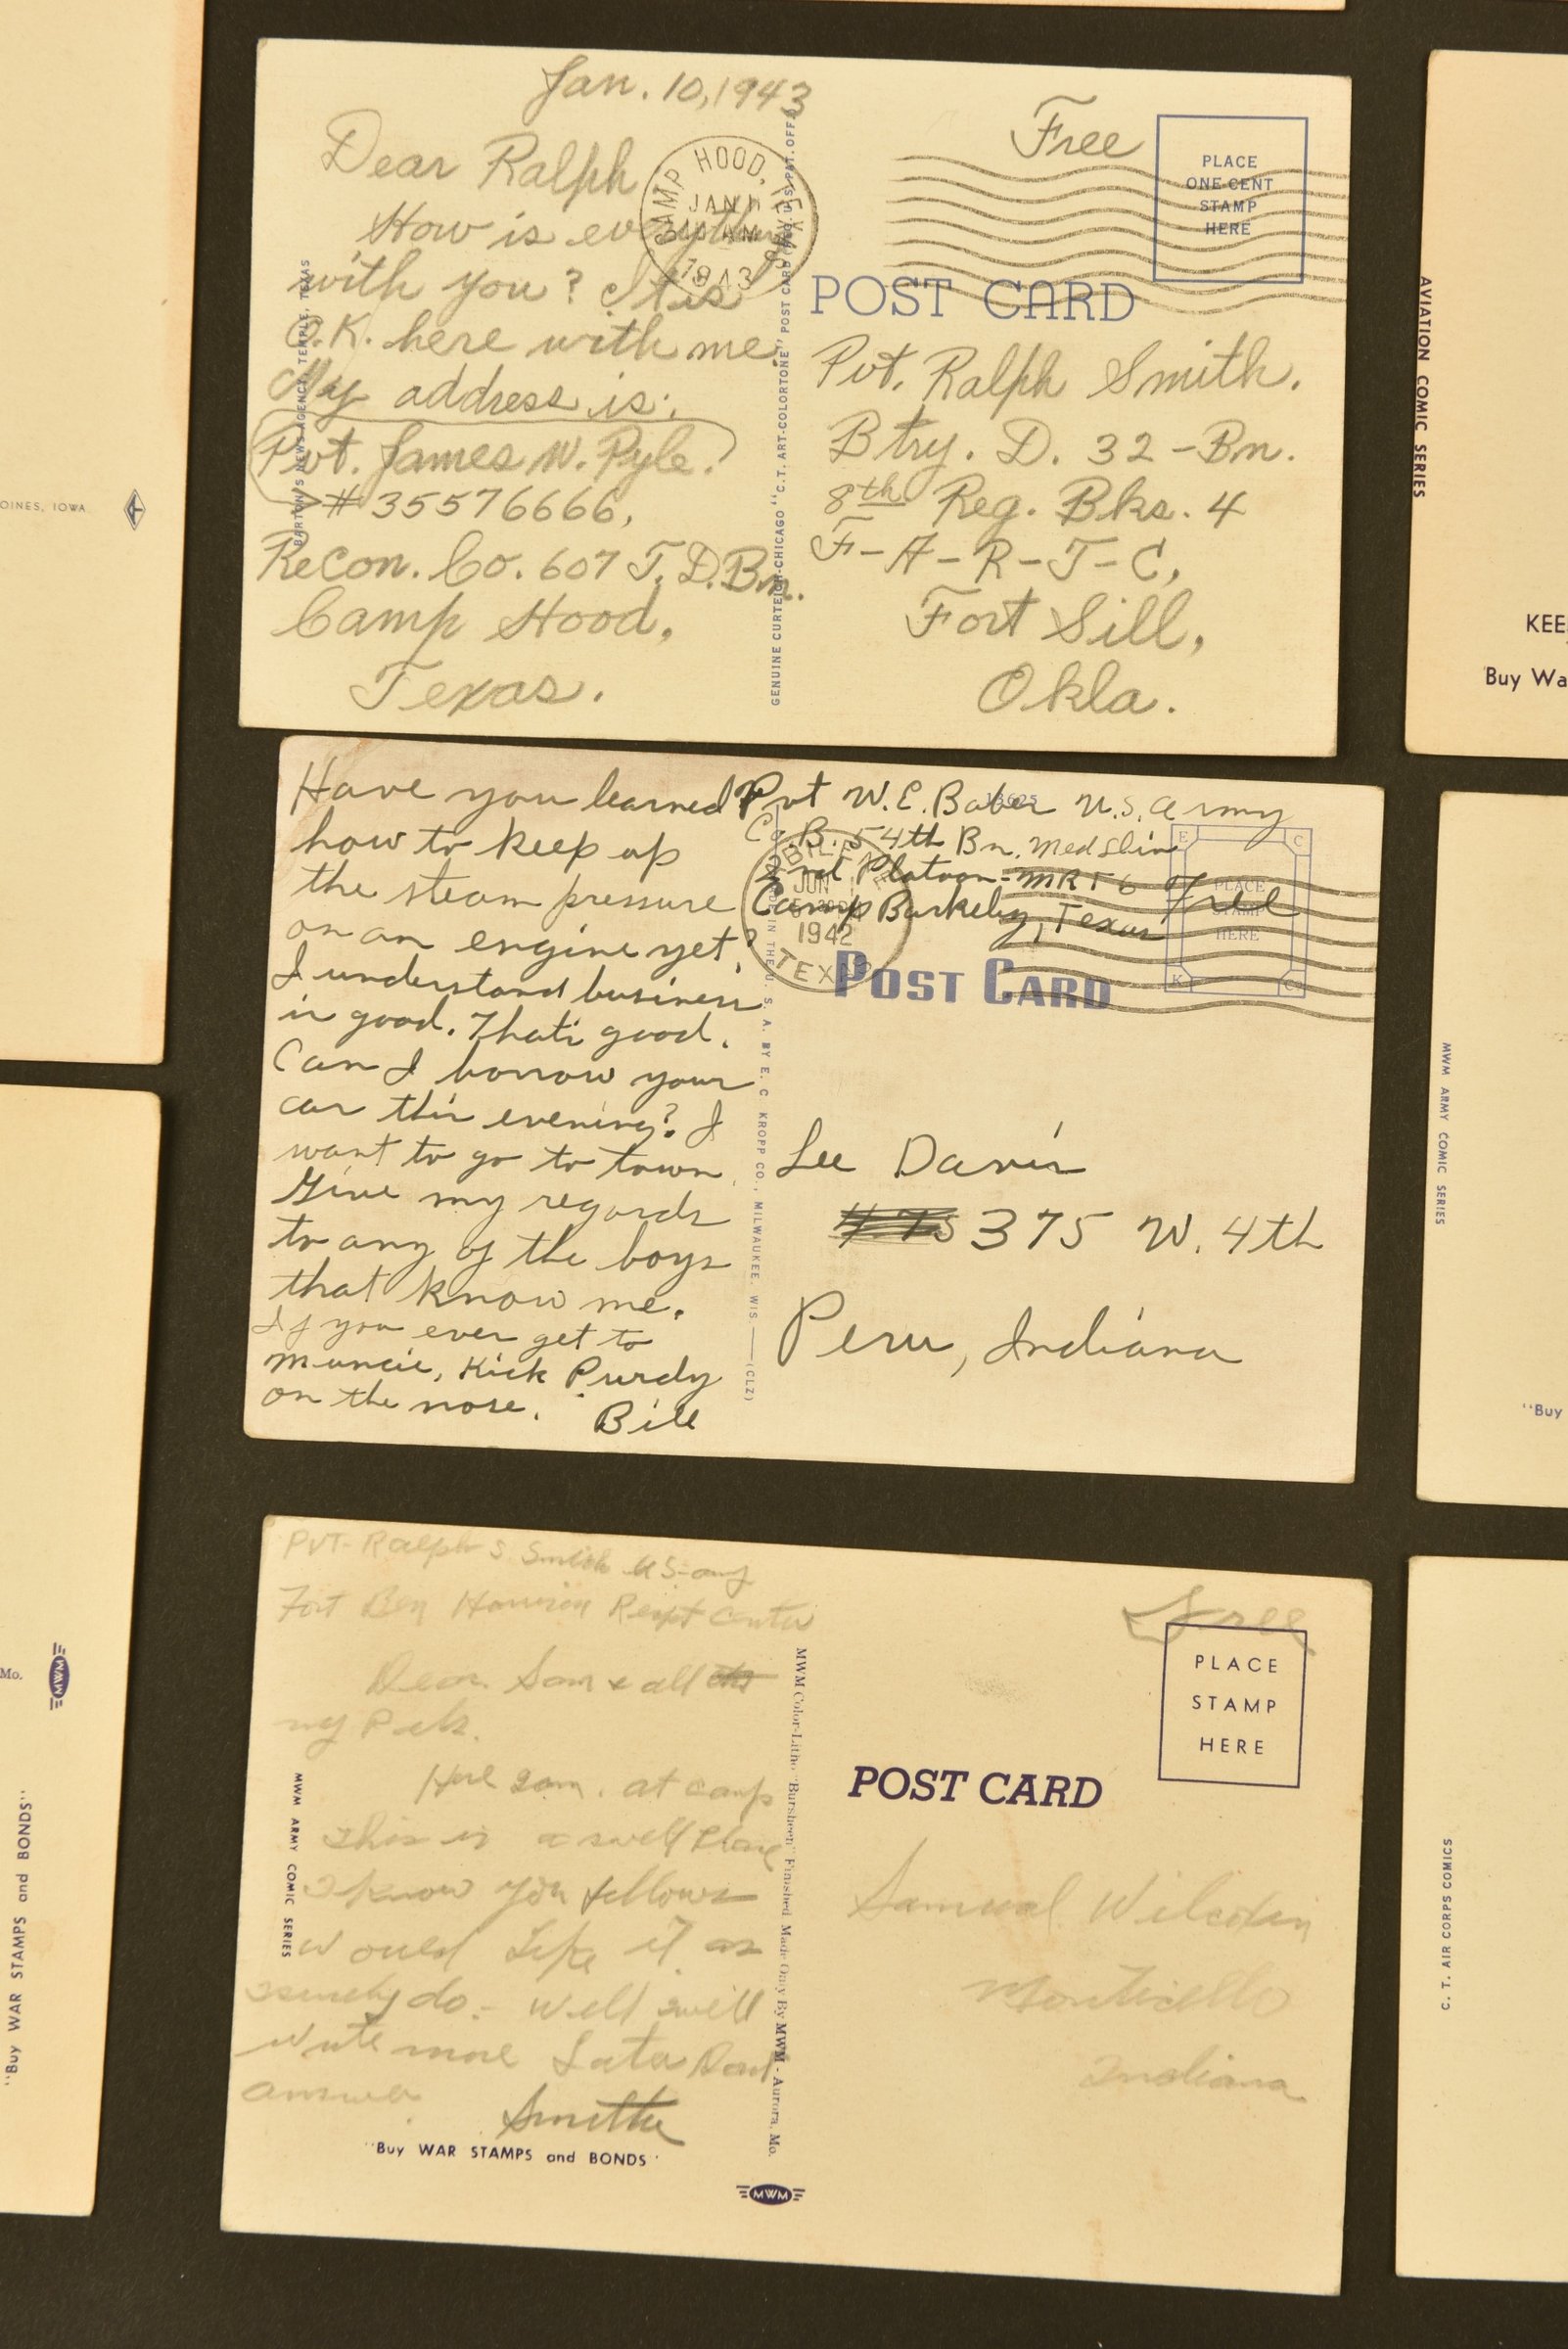 Jan. 10, 1943
Dear Ralph
How is everything
with you? It is
O.K. here with me.
My address is:
Pvt. James W. Pyle.
# 35576666,
Recon. Co. 607 T. D. Bn.
Camp Hood,
Texas.
CAMP HOOD, TEX.
JAN 11
1943
BURTON'S NEWS AGENCY, TEMPLE, TEXAS
GENUINE CURTEICH-CHICAGO "C.T. ART-COLORTONE" POST CARD (REG. U.S. PAT. OFF.)
Free
PLACE
ONE CENT
STAMP
HERE
POST CARD
Pvt. Ralph Smith.
Btry. D. 32-Bn.
8th Reg. Bks. 4
F-A-R-T-C,
Fort Sill,
Okla.
Have you learned
how to keep up
the steam pressure
on an engine yet?
I understand business
is good. That's good.
Can I borrow your
car this evening? I
want to go to town.
Give my regards
to any of the boys
that know me.
If you ever get to
Muncie, Kick Purdy
on the nose. Bill
Pvt W. E. Baber U.S. Army
Co. B. 54th Bn. Med
2nd Platoon-MRTC
Camp Barkeley, Texas
Free
ABILENE
JUN
1942
TEXAS
E C
PLACE
STAMP
HERE
K C
POST CARD
IN THE U. S. A. BY E. C. KROPP CO., MILWAUKEE, WIS. (CLZ)
Lee Davis
375 W. 4th
Peru, Indiana
Pvt-Ralph S Smith US-army
Fort Ben Harrison Recpt Center
Dear Sam & all
my Pals.
Here I am. at camp
This is a swell Place
I know you fellows
would Like it as
I surely do- Well I will
write more Later Dont
answer.
Smittie
MWM ARMY COMIC SERIES
"Buy WAR STAMPS and BONDS"
MWM Color-Litho "Bursheen" Finished. Made Only By MWM - Aurora, Mo.
MWM
Free
PLACE
STAMP
HERE
POST CARD
Samual
Monticello
Indiana
OINES, IOWA
Mo.
MWM
"Buy WAR STAMPS and BONDS"
AVIATION COMIC SERIES
KEE
Buy Wa
MWM ARMY COMIC SERIES
"Buy
C. T. AIR CORPS COMICS